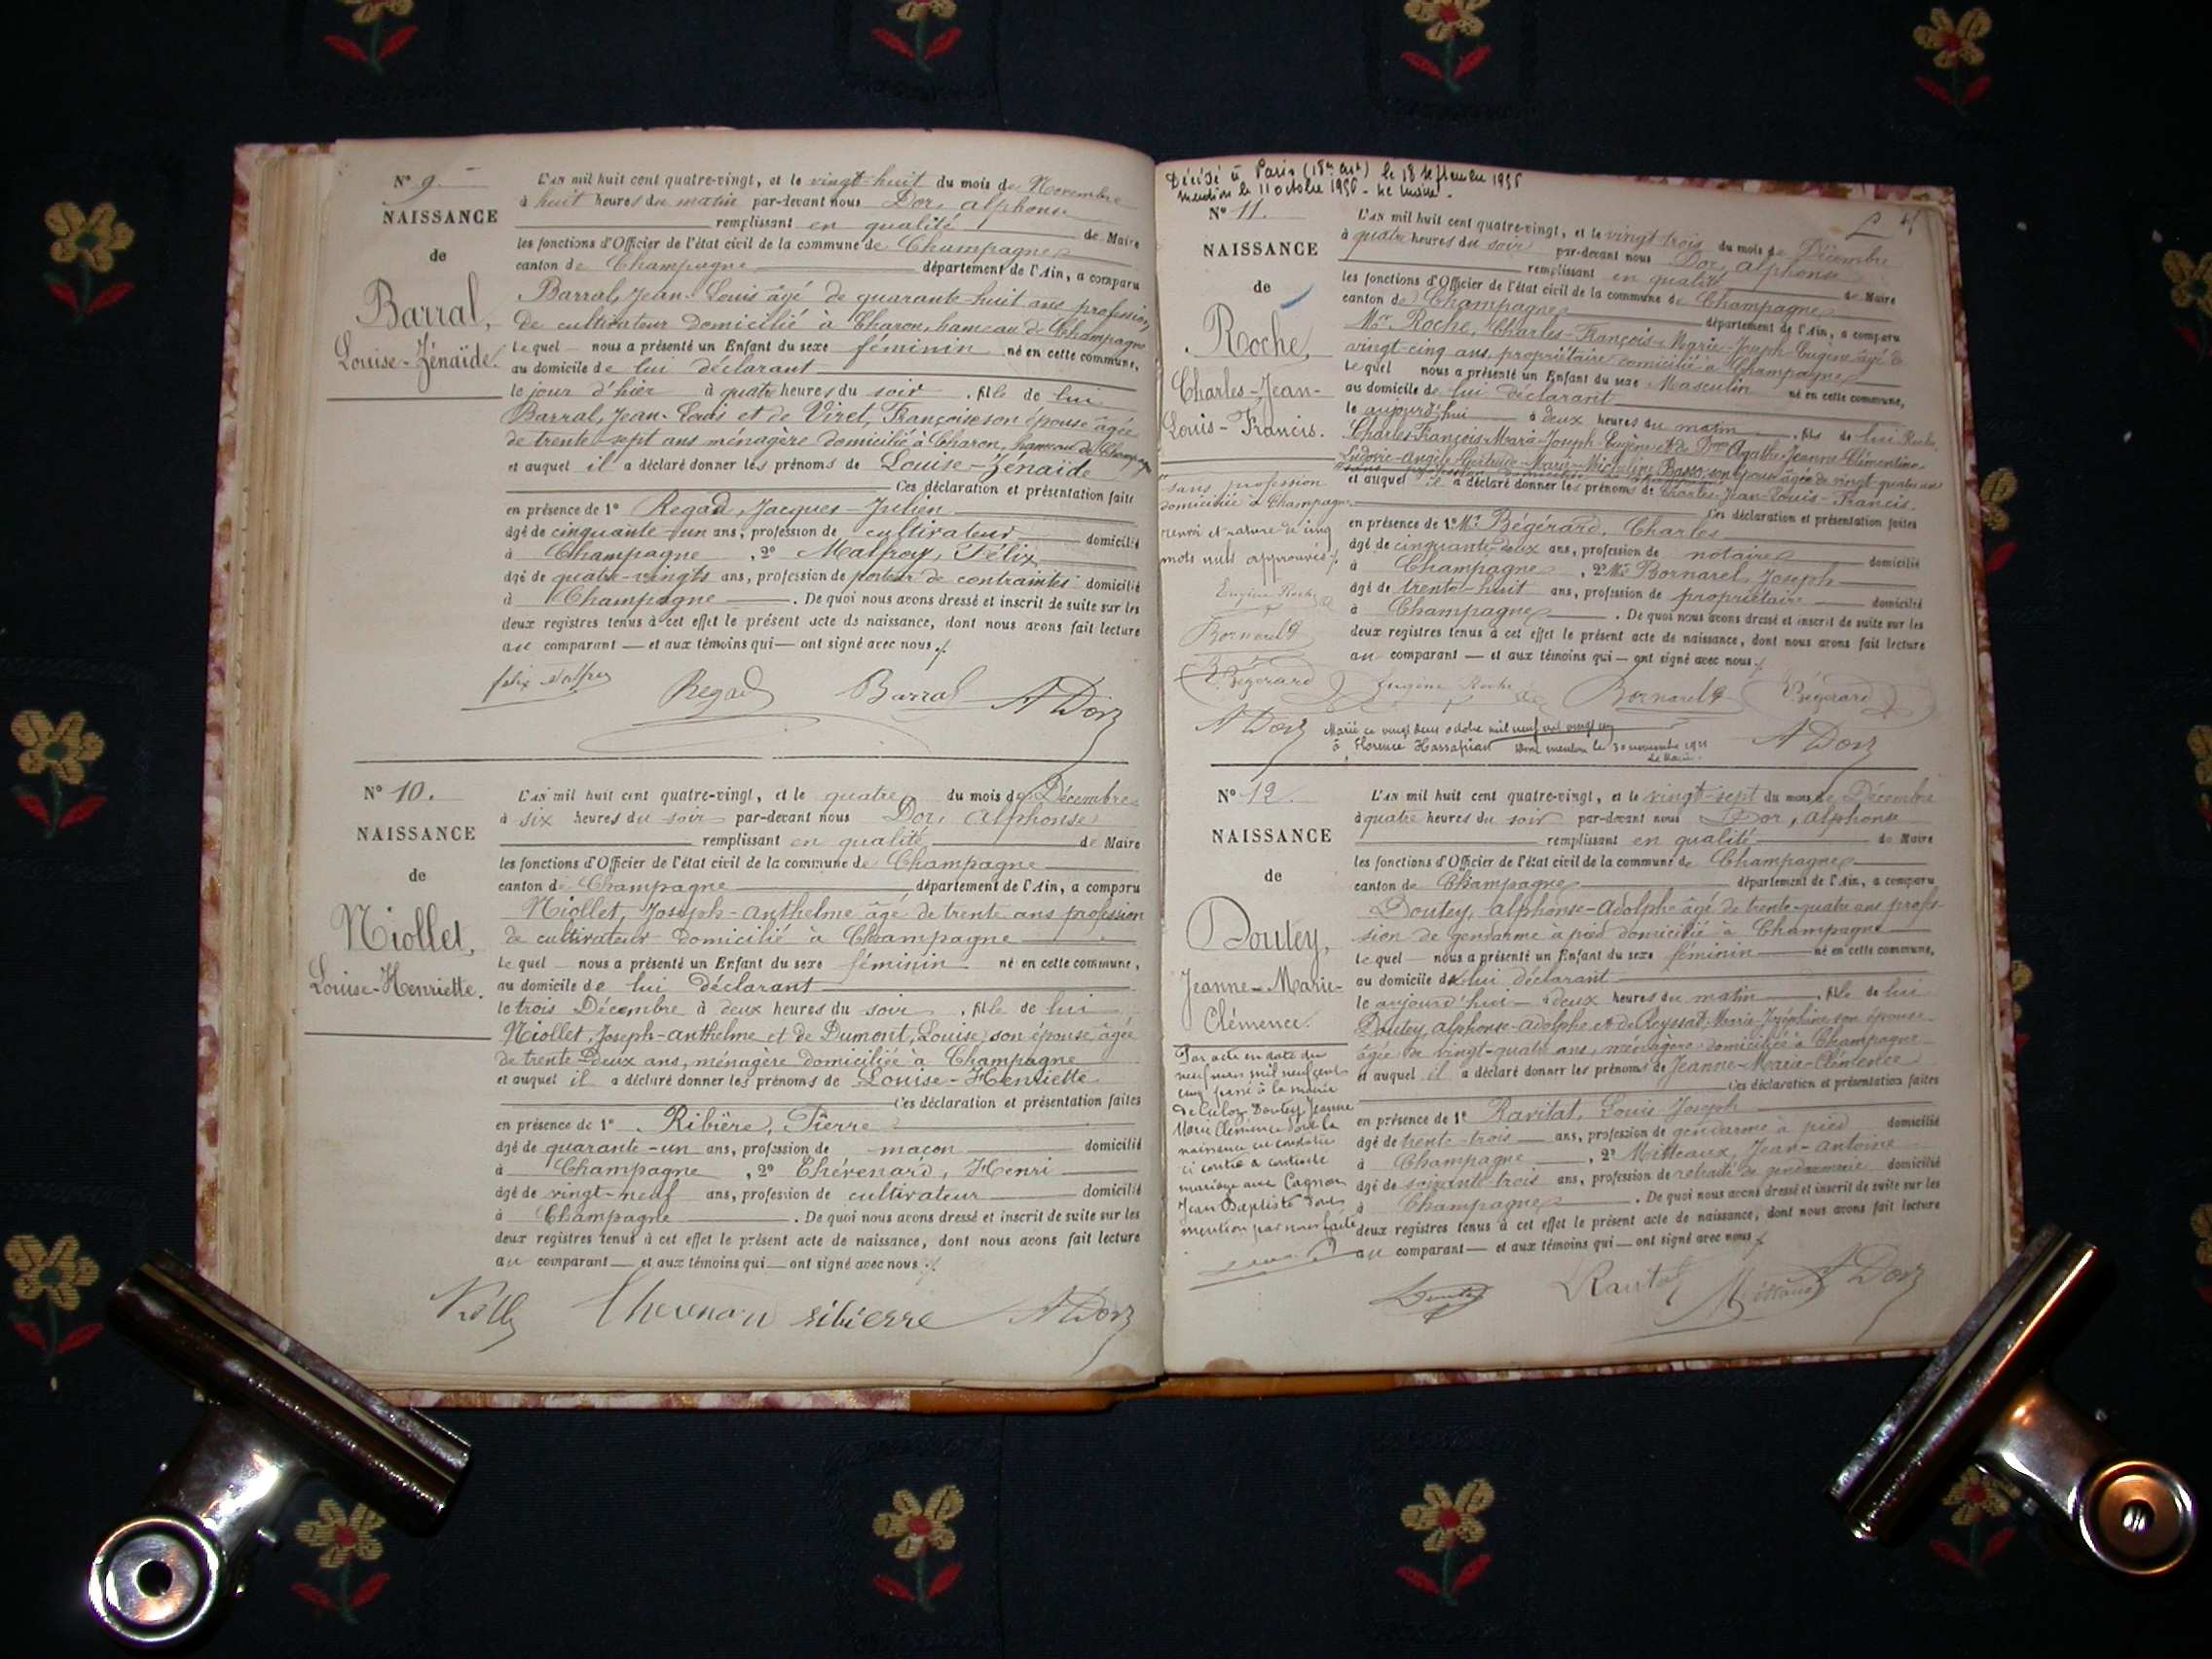 N° 9.
NAISSANCE
de
Barral,
Louise-Zénaïde.
L'AN mil huit cent quatre-vingt, et le vingt-huit du mois de Novembre
à huit heures du matin par-devant nous Dor, alphonse
remplissant en qualité de Maire
les fonctions d'Officier de l'état civil de la commune de Champagne
canton de Champagne département de l'Ain, a comparu
Barral, Jean-Louis âgé de quarante-huit ans profession
de cultivateur domicilié à Charon, hameau de Champagne
Le quel nous a présenté un Enfant du sexe féminin né en cette commune,
au domicile de lui déclarant
le jour d'hier à quatre heures du soir, fille de lui
Barral, Jean-Louis et de Viret, Françoise son épouse âgée
de trente-sept ans ménagère domicilié à Charon, hameau de Champagne
et auquel il a déclaré donner les prénoms de Louise-Zénaïde
Ces déclaration et présentation faite
en présence de 1° Regad, Jacques-Julien
âgé de cinquante-un ans, profession de cultivateur domicilié
à Champagne, 2° Malfroy, Félix
âgé de quatre-vingts ans, profession de porteur de contraintes domicilié
à Champagne. De quoi nous avons dressé et inscrit de suite sur les
deux registres tenus à cet effet le présent acte de naissance, dont nous avons fait lecture
au comparant — et aux témoins qui — ont signé avec nous
Regad Barral A Dor
N° 10.
NAISSANCE
de
Niollet,
Louise-Henriette.
L'AN mil huit cent quatre-vingt, et le quatre du mois de Décembre
à six heures du soir par-devant nous Dor, alphonse
remplissant en qualité de Maire
les fonctions d'Officier de l'état civil de la commune de Champagne
canton de Champagne département de l'Ain, a comparu
Niollet, Joseph-anthelme âgé de trente ans profession
de cultivateur domicilié à Champagne
Le quel nous a présenté un Enfant du sexe féminin né en cette commune,
au domicile de lui déclarant
le trois Décembre à deux heures du soir, fille de lui
Niollet, Joseph-anthelme et de Dumont, Louise, son épouse âgée
de trente-deux ans, ménagère domiciliée à Champagne
et auquel il a déclaré donner les prénoms de Louise-Henriette
Ces déclaration et présentation faites
en présence de 1° Ribière, Pierre
âgé de quarante-un ans, profession de maçon domicilié
à Champagne, 2° Thévenard, Henri
âgé de vingt-neuf ans, profession de cultivateur domicilié
à Champagne. De quoi nous avons dressé et inscrit de suite sur les
deux registres tenus à cet effet le présent acte de naissance, dont nous avons fait lecture
au comparant — et aux témoins qui — ont signé avec nous
ribierre A Dor
Décédé à Paris (18e art) le 18 septembre 1956
Mention le 11 octobre 1956 - Le Maire.
N° 11.
NAISSANCE
de
Roche,
Charles-Jean-
Louis-Francis.
sans profession
domiciliée à Champagne
renvoi et rature de cinq
mots nuls approuvés
Eugène Roche
Bornarel
Bégérard
L'AN mil huit cent quatre-vingt, et le vingt-trois du mois de Décembre
à quatre heures du soir par-devant nous Dor, alphonse
remplissant en qualité de Maire
les fonctions d'Officier de l'état civil de la commune de Champagne
canton de Champagne département de l'Ain, a comparu
Mr. Roche, Charles-François-Marie-Joseph-Eugène âgé de
vingt-cinq ans, propriétaire domicilié à Champagne
Le quel nous a présenté un Enfant du sexe Masculin né en cette commune,
au domicile de lui déclarant
le aujourd'hui à deux heures du matin, fils de lui Roche
Charles-François-Marie-Joseph-Eugène et de Dme Agathe-Jeanne-Clémentine-
Ludovie-Angèle-Gertrude-Marie-Micheline Basso, son épouse âgée de vingt-quatre ans
et auquel il a déclaré donner les prénoms de Charles-Jean-Louis-Francis.
Ces déclaration et présentation faites
en présence de 1° Mr Bégérard, Charles
âgé de cinquante-deux ans, profession de notaire domicilié
à Champagne, 2° Mr Bornarel, Joseph
âgé de trente-huit ans, profession de propriétaire domicilié
à Champagne. De quoi nous avons dressé et inscrit de suite sur les
deux registres tenus à cet effet le présent acte de naissance, dont nous avons fait lecture
au comparant — et aux témoins qui — ont signé avec nous
Eugène Roche Bornarel Bégérard
A Dor Marié le vingt deux octobre mil neuf cent vingt un A Dor
à Florence Hassapian mention le 30 novembre 1921
Le Maire.
N° 12.
NAISSANCE
de
Doutey,
Jeanne-Marie-
Clémence.
Par acte en date du
neuf mars mil neuf cent
cinq passé à la mairie
de Culoz Doutey Jeanne
Marie Clémence dont la
naissance est constatée
ci contre a contracté
mariage avec Cagnon
Jean Baptiste dont
mention par nous faite
L'AN mil huit cent quatre-vingt, et le vingt-sept du mois de Décembre
à quatre heures du soir par-devant nous Dor, alphonse
remplissant en qualité de Maire
les fonctions d'Officier de l'état civil de la commune de Champagne
canton de Champagne département de l'Ain, a comparu
Doutey, alphonse-adolphe âgé de trente-quatre ans profes-
sion de gendarme à pied domicilié à Champagne
Le quel nous a présenté un Enfant du sexe féminin né en cette commune,
au domicile de lui déclarant
le aujourd'hui à deux heures du matin, fille de lui
Doutey, alphonse-adolphe et de Reyssat, Marie-Joséphine son épouse
âgée de vingt-quatre ans, ménagère domiciliée à Champagne
et auquel il a déclaré donner les prénoms de Jeanne-Marie-Clémence
Ces déclaration et présentation faites
en présence de 1° Ravitat, Louis-Joseph
âgé de trente-trois ans, profession de gendarme à pied domicilié
à Champagne, 2° Mitteaux, Jean-antoine
âgé de soixante-trois ans, profession de retraité de gendarmerie domicilié
à Champagne. De quoi nous avons dressé et inscrit de suite sur les
deux registres tenus à cet effet le présent acte de naissance, dont nous avons fait lecture
au comparant — et aux témoins qui — ont signé avec nous
Doutey Ravitat A Dor